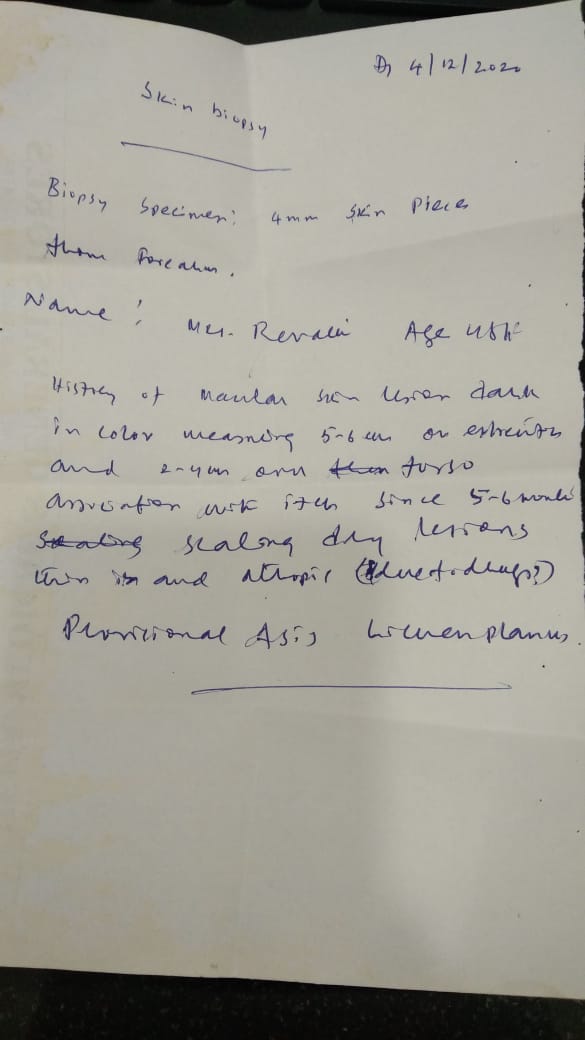 D 4/12/2020
Skin biopsy
Biopsy Specimen: 4mm Skin Pieces
from Forearm.
Name : Mrs. Age
History of Macular skin lesion dark
in color measuring 5-6 cm on extremities
and 2-4 cm and torso
association with itch since 5-6 months
scaling dry lesions
thin and atropic (due to drugs?)
Provisional Lichen planus.